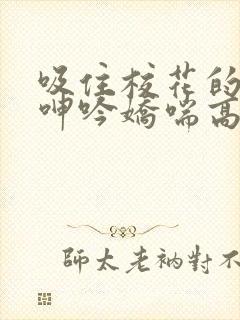 吸住校花的
呻吟嬌喘高
師太老衲對不